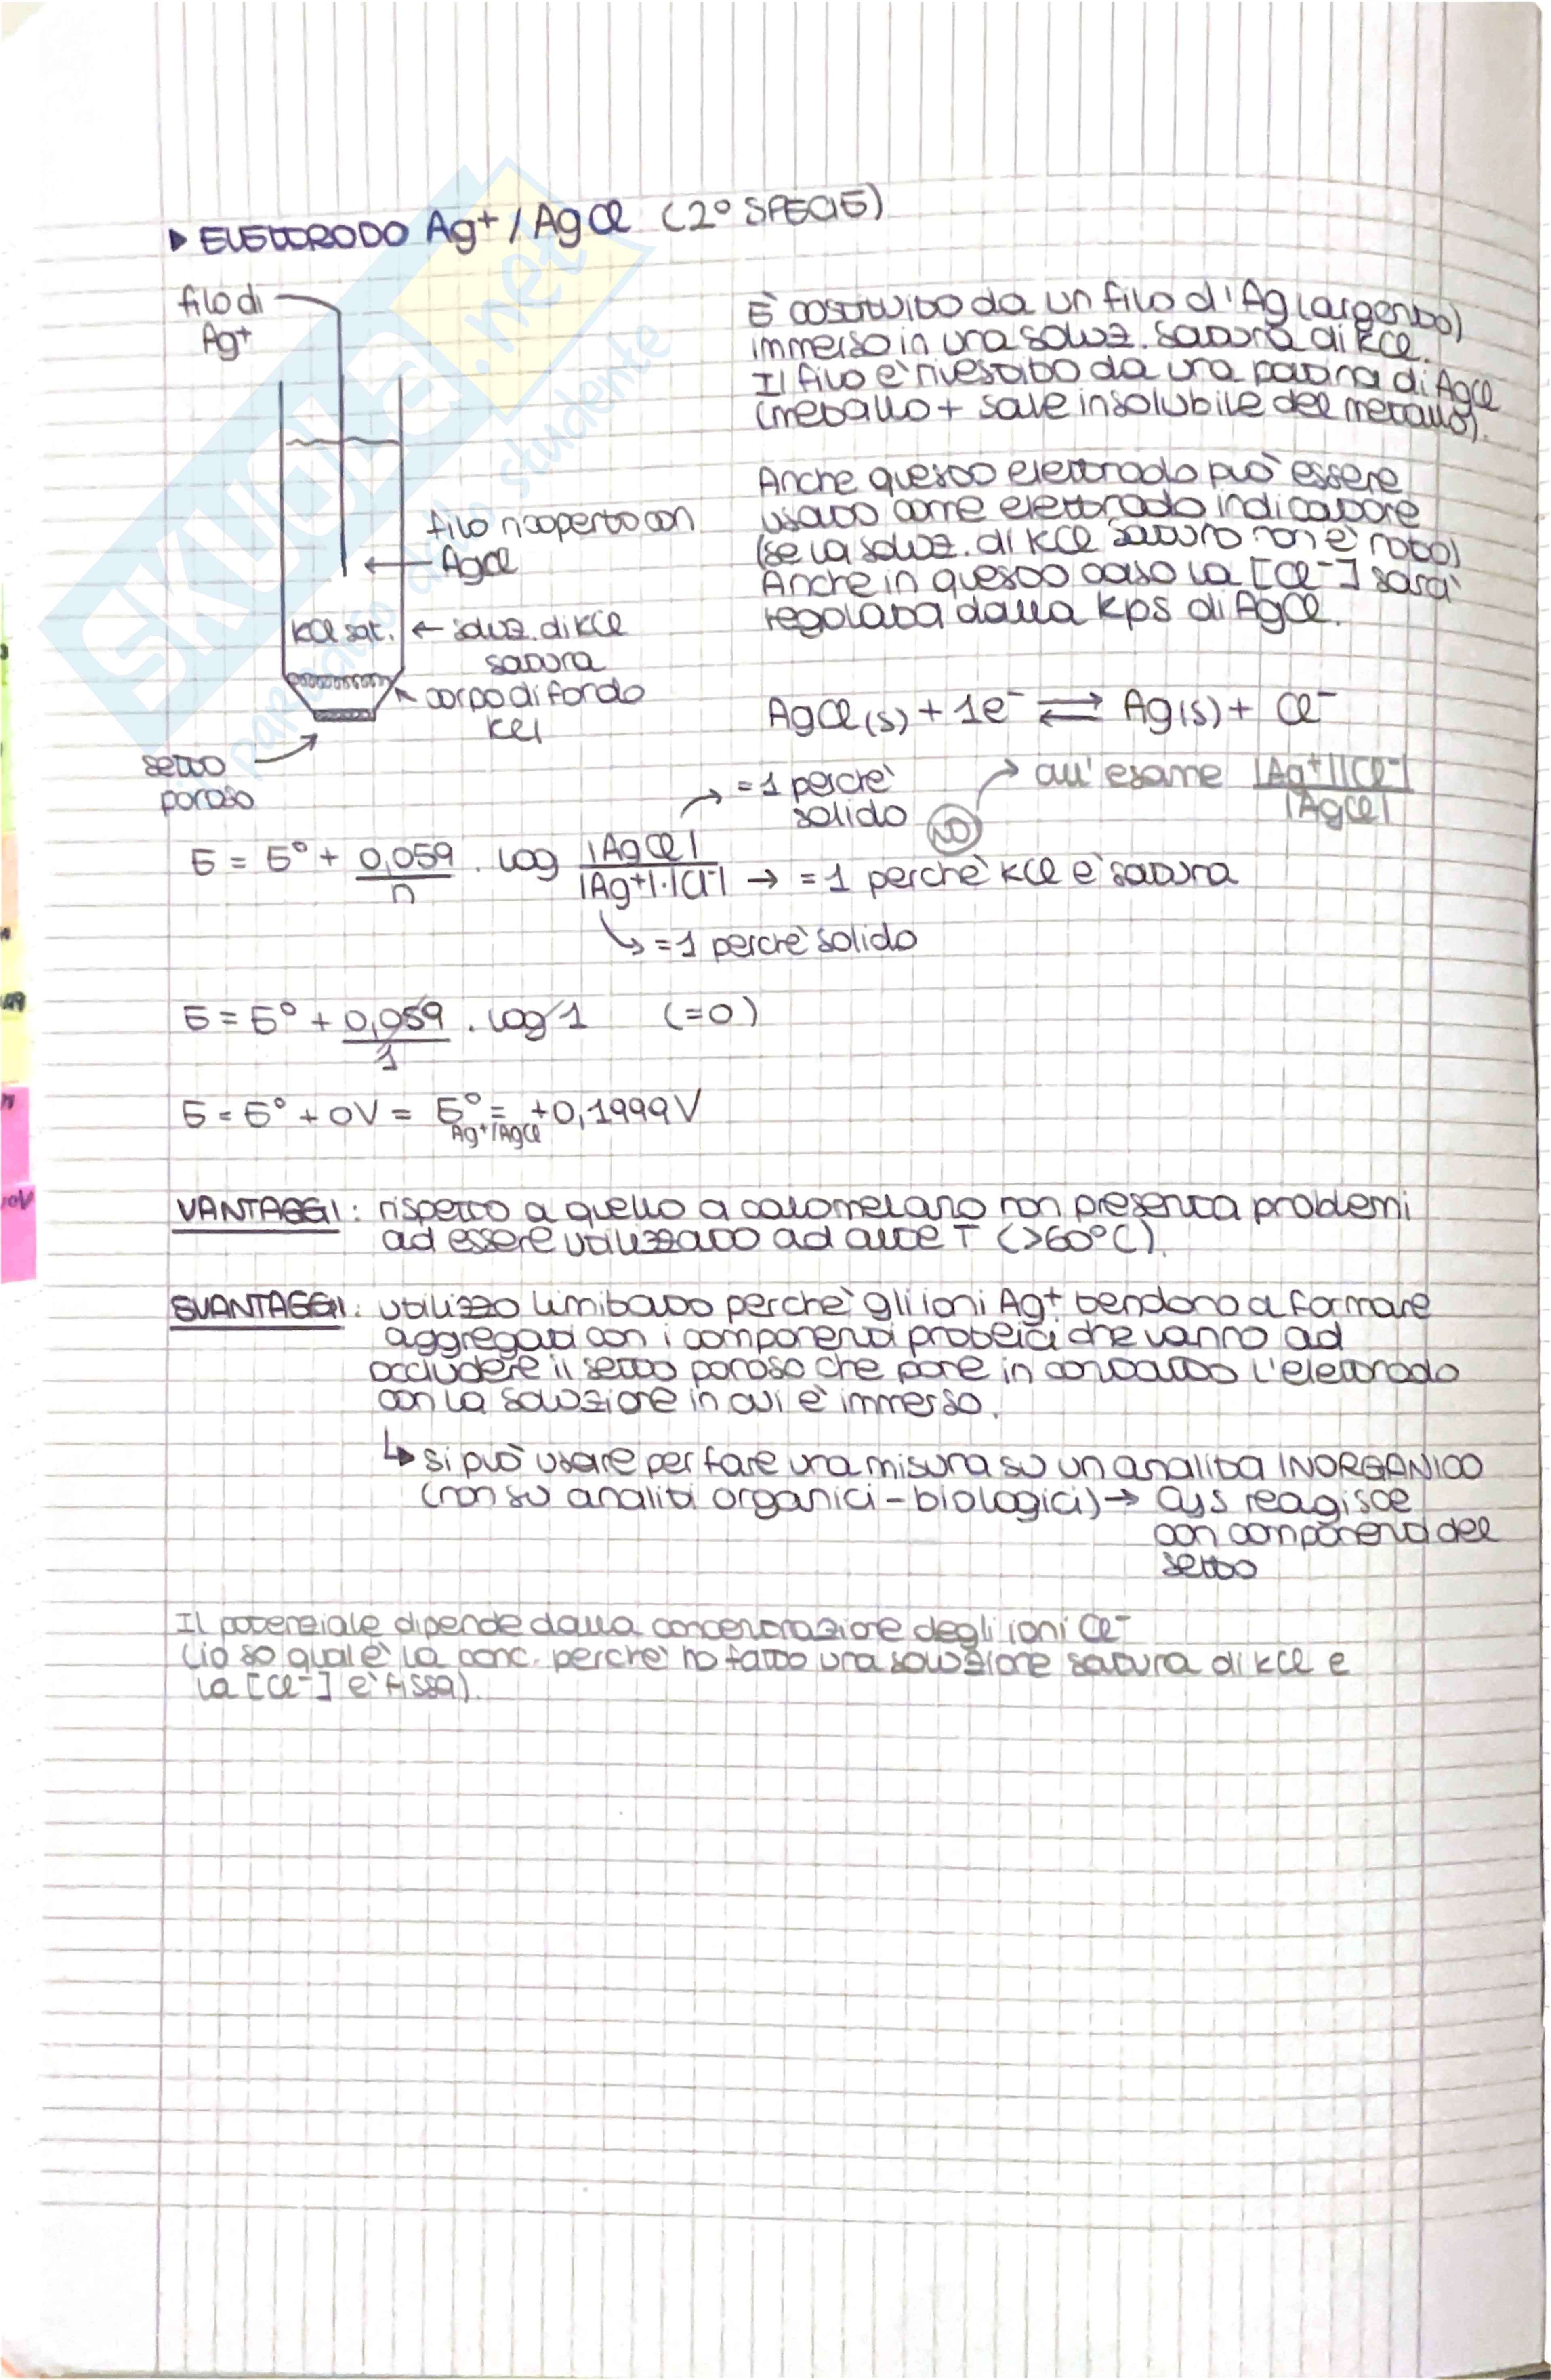 ▶ ELETTRODO Ag⁺/AgCl (2° SPECIE)
filo di
Ag⁺
filo ricoperto con
AgCl
KCl sat. ← soluz. di KCl
satura
corpo di fondo
KCl
setto
poroso
È costituito da un filo d'Ag (argento)
immerso in una soluz. satura di KCl.
Il filo è rivestito da una patina di AgCl
(metallo + sale insolubile del metallo).
Anche questo elettrodo può essere
usato come elettrodo indicatore
(se la soluz. di KCl saturo non è noto)
Anche in questo caso la [Cl⁻] sarà
regolata dalla Kps di AgCl.
AgCl(s) + 1e⁻ ⇌ Ag(s) + Cl⁻
→ all'esame |Ag⁺||Cl⁻| / |AgCl|
NO
→ = 1 perchè
solido
E = E° + 0,059/n · log |AgCl| / |Ag⁺|·|Cl⁻| → = 1 perchè KCl è satura
↳ = 1 perchè solido
E = E° + 0,059/1 · log 1 (=0)
E = E° + 0V = E° Ag⁺/AgCl = +0,1999V
VANTAGGI: rispetto a quello a calomelano non presenta problemi
ad essere utilizzato ad alte T (>60°C).
SVANTAGGI: utilizzo limitato perchè gli ioni Ag⁺ tendono a formare
aggregati con i componenti proteici che vanno ad
occludere il setto poroso che pone in contatto l'elettrodo
con la soluzione in cui è immerso.
↳ si può usare per fare una misura su un analita INORGANICO
(non su analiti organici - biologici) → Cys reagisce
con componenti del
setto
Il potenziale dipende dalla concentrazione degli ioni Cl⁻
(io so qual è la conc. perchè ho fatto una soluzione satura di KCl e
la [Cl⁻] è fissa).
SKUOLA.net